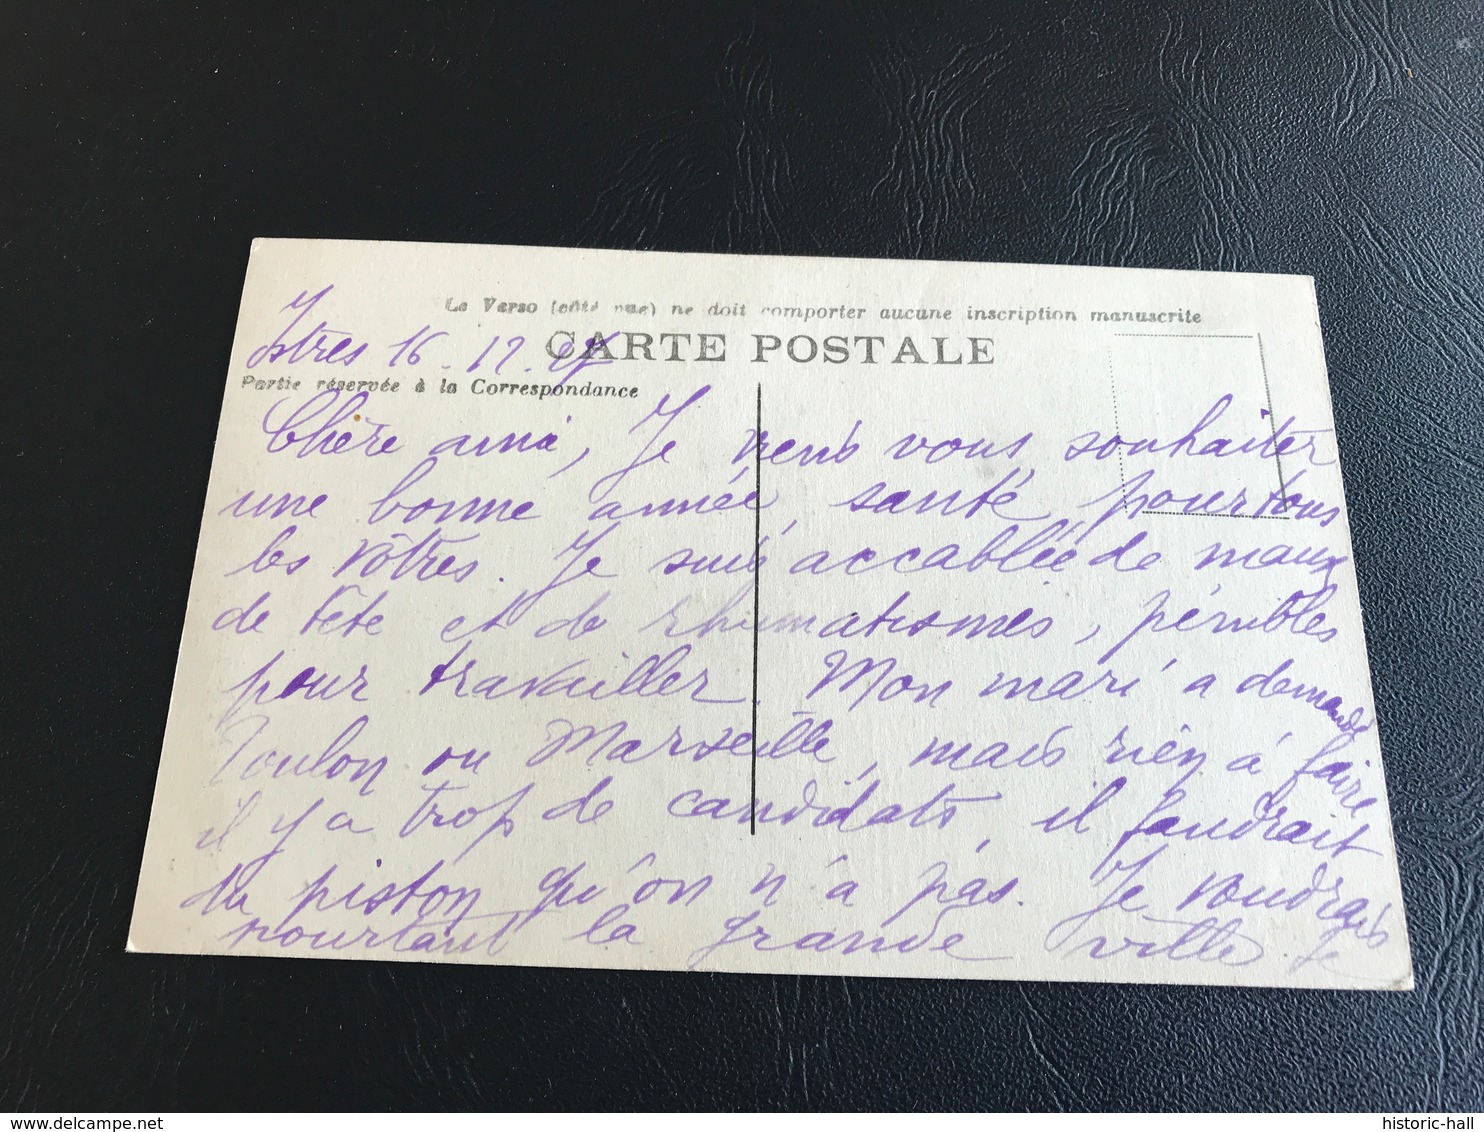 Le Verso (côté vue) ne doit comporter aucune inscription manuscrite
CARTE POSTALE
Istres 16.12.
Partie réservée à la Correspondance
Chère amie, Je viens vous souhaiter
une bonne année, santé, pour tous
les vôtres. Je suis accablée de maux
de tête et de rhumatismes, pénibles
pour travailler. Mon mari a demandé
Toulon ou Marseille, mais rien à faire
il y a trop de candidats, il faudrait
du piston qu'on n'a pas. Je voudrais
pourtant la grande ville. Je
historic-hall